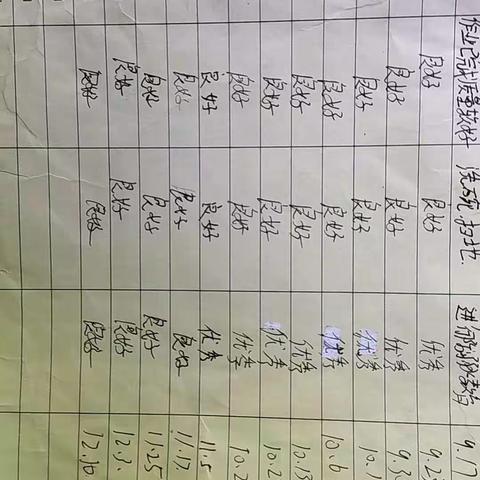 作业已完成质量较好 洗碗.扫地. 进行 教育 9.17
良好 良好 优秀 9.2
良好 良好 优秀 9.3
良好 良好 优秀 10.1
良好 良好 优秀 10.6
良好 良好 优秀 10.13
良好 良好 优秀 10.2
良好 良好 优秀 10.2
良好 良好 优秀 11.5
良好 良好 良好 11.17
良好 良好 良好 11.25
良好 良好 良好 12.3.
良好 良好 良好 12.10